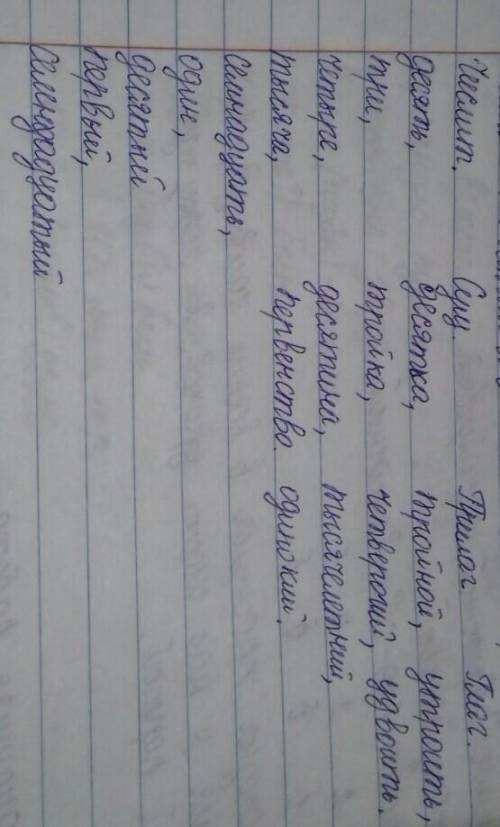 Числит. Сущ. Прилаг Глаг.
десять, десятка, тройной, утроить,
три, тройка, четвероший, удвоить.
четыре, десятина, тысячелетний,
тысяча, первенство. одинокий.
семнадцать,
один,
десятый
первый,
семнадцатый